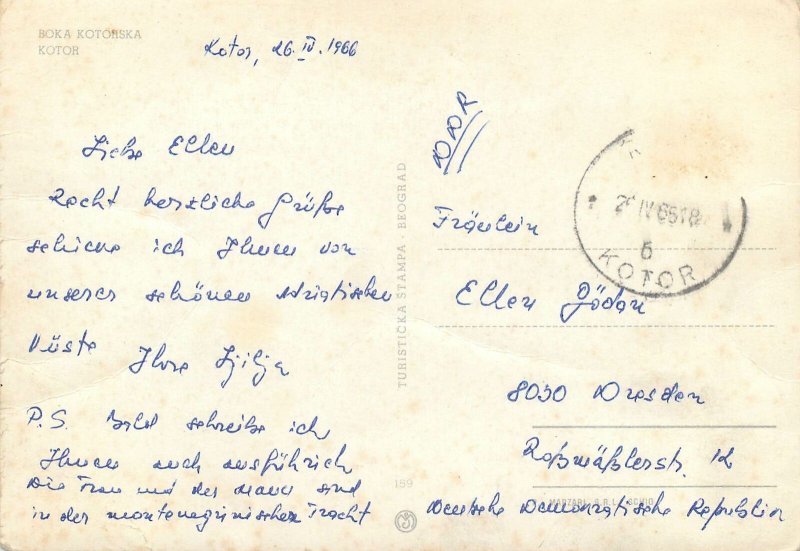 BOKA KOTORSKA
KOTOR
Kotor, 26. IV. 1966
Liebe Ellen
Recht herzliche Grüße
schicke ich Ihnen von
unserer schönen Adriatischen
Küste
Ihre Ljilja
P.S. Bald schreibe ich
Ihnen auch ausführich
Die Frau und der Mann sind
in der montenegrinischen Tracht
TURISTIČKA ŠTAMPA · BEOGRAD
159
DDR
IV 66 18
6
KOTOR
Fräulein
Ellen Gödan
8030 Dresden
Roßmäßlerstr. 12
Deutsche Demokratische Republik